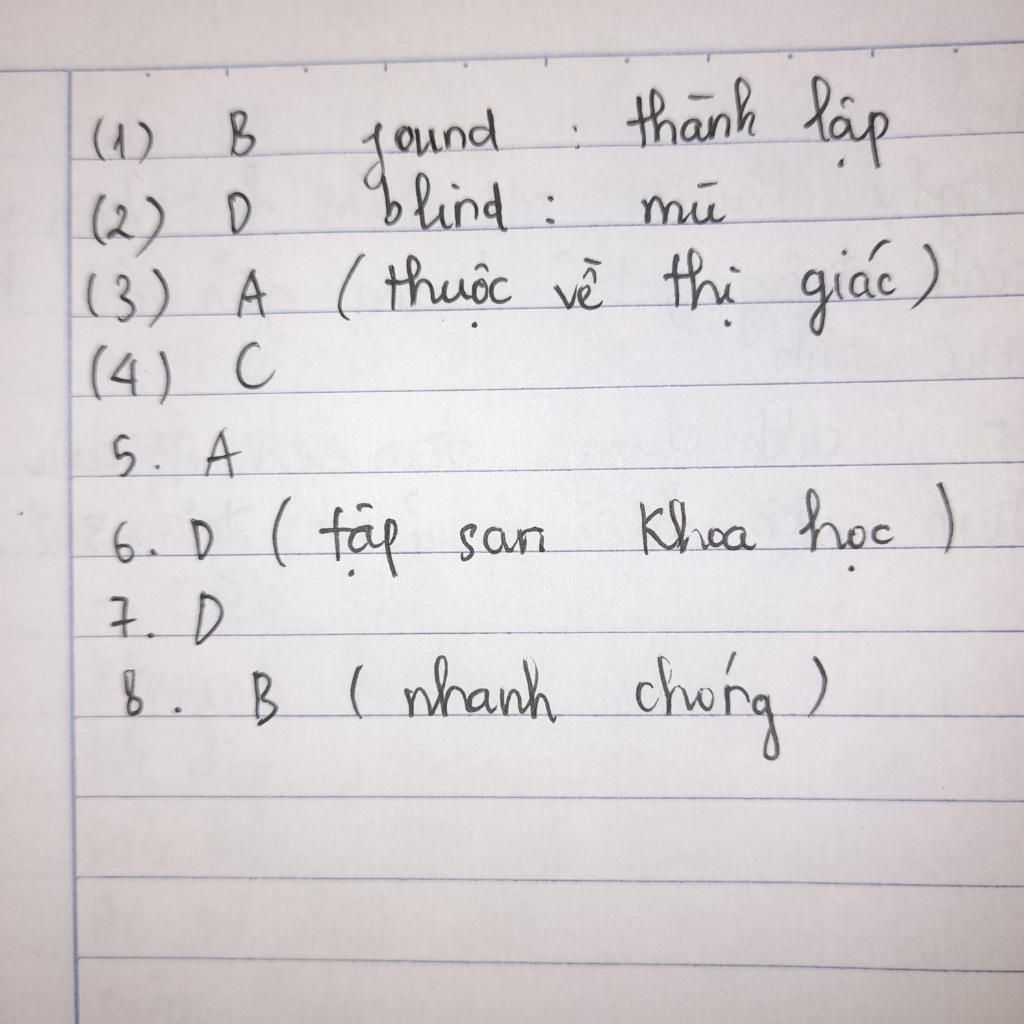 (1) B found : thành lập
(2) D blind : mù
(3) A (thuộc về thị giác)
(4) C
5. A
6. D (tập san Khoa học)
7. D
8. B (nhanh chóng)